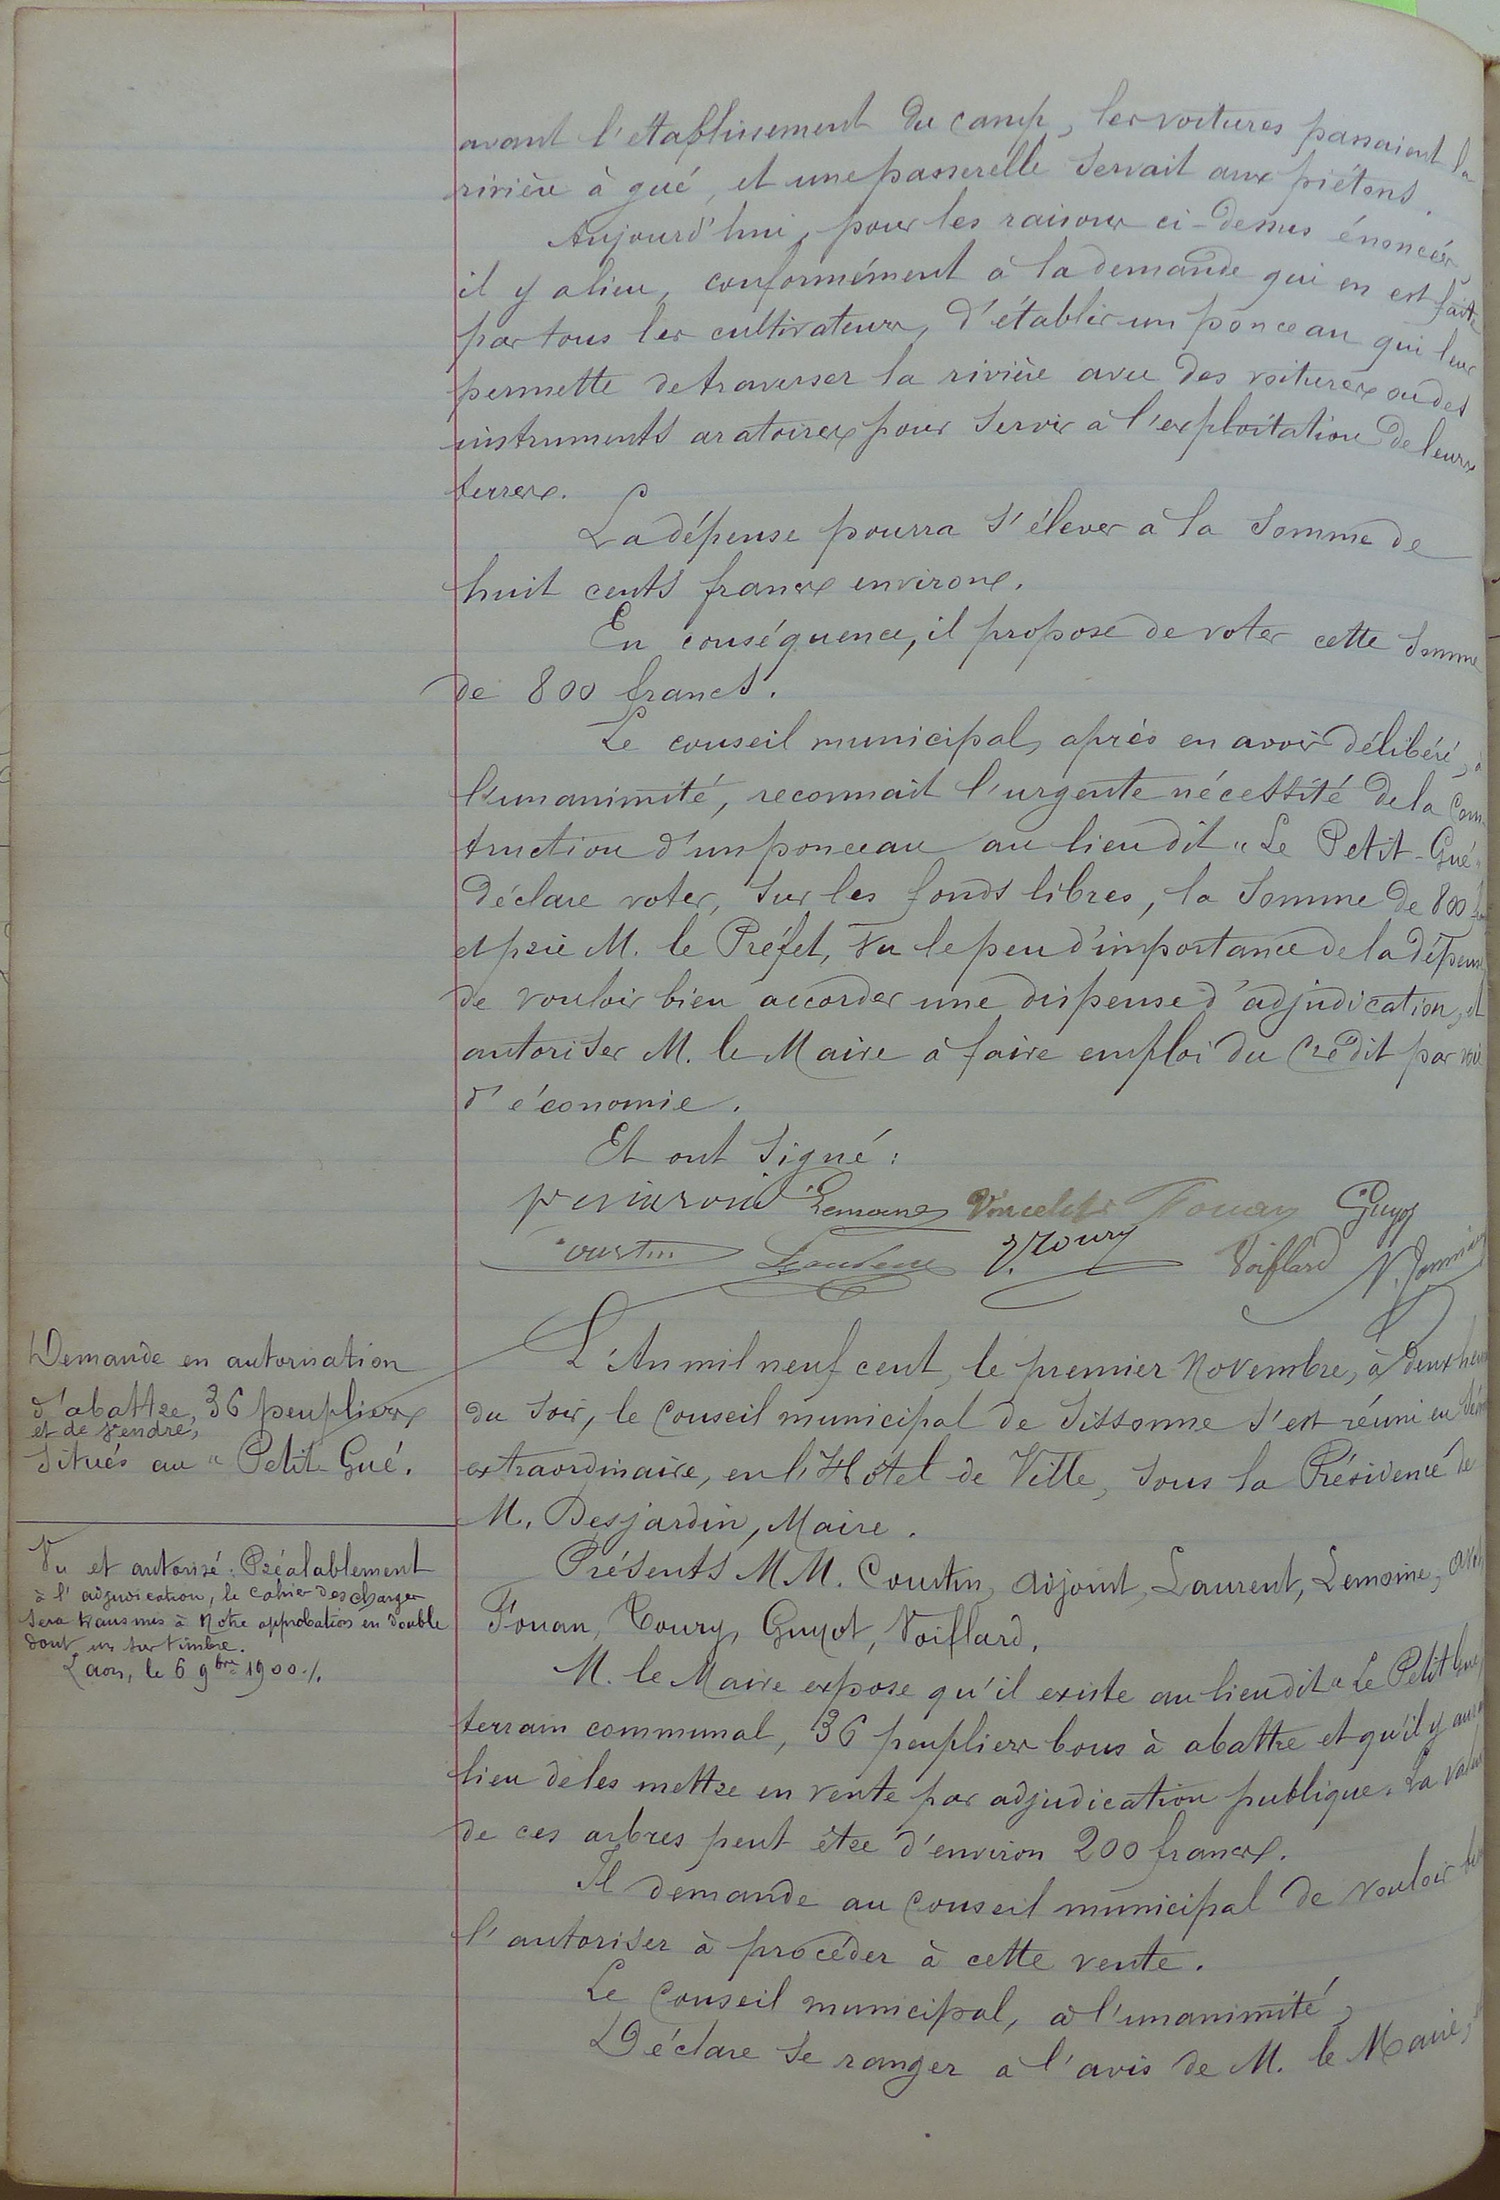 avant l'établissement du camp, les voitures passaient la
rivière à gué, et une passerelle servait aux piétons.
Aujourd'hui, pour les raisons ci-dessus énoncées,
il y a lieu, conformément à la demande qui en est faite
par tous les cultivateurs, d'établir un ponceau qui leur
permette de traverser la rivière avec des voitures ou des
instruments aratoires pour servir à l'exploitation de leurs
terres.
La dépense pourra s'élever à la somme de
huit cents francs environs.
En conséquence, il propose de voter cette somme
de 800 francs.
Le conseil municipal, après en avoir délibéré, à
l'unanimité, reconnait l'urgente nécessité de la Cons
truction d'un ponceau au lieu dit "Le Petit-Gué"
Déclare voter, sur les fonds libres, la somme de 800
et prie M. le Préfet, vu le peu d'importance de la dépense
de vouloir bien accorder une dispense d'adjudication, et
autoriser M. le Maire à faire emploi du Crédit par voie
d'économie.
Et ont signé :
Lemoine Vincelet Fouan Guyot
Coustin Laurent Toury Voiflard
Demande en autorisation
d'abattre, 36 peupliers
et de vendre,
situés au "Petit Gué.
Vu et autorisé : Préalablement
à l'adjudication, le cahier des charges
sera transmis à Notre approbation en double
dont un sur timbre.
Laon, le 6 9bre 1900./.
L'An mil neuf cent, le premier Novembre, à deux heures
du soir, le Conseil municipal de Sissonne s'est réuni en
extraordinaire, en l'Hôtel de Ville, sous la Présidence de
M. Desjardin, Maire.
Présents MM. Coustin, adjoint, Laurent, Lemoine,
Fouan, Toury, Guyot, Voiflard.
M. le Maire expose qu'il existe au lieu dit "Le Petit Gué"
terrain communal, 36 peupliers bons à abattre et qu'il y aura
lieu de les mettre en vente par adjudication publique. La valeur
de ces arbres peut être d'environ 200 francs.
Il demande au Conseil municipal de vouloir bien
l'autoriser à procéder à cette vente.
Le Conseil municipal, à l'unanimité,
Déclare se ranger à l'avis de M. le Maire,